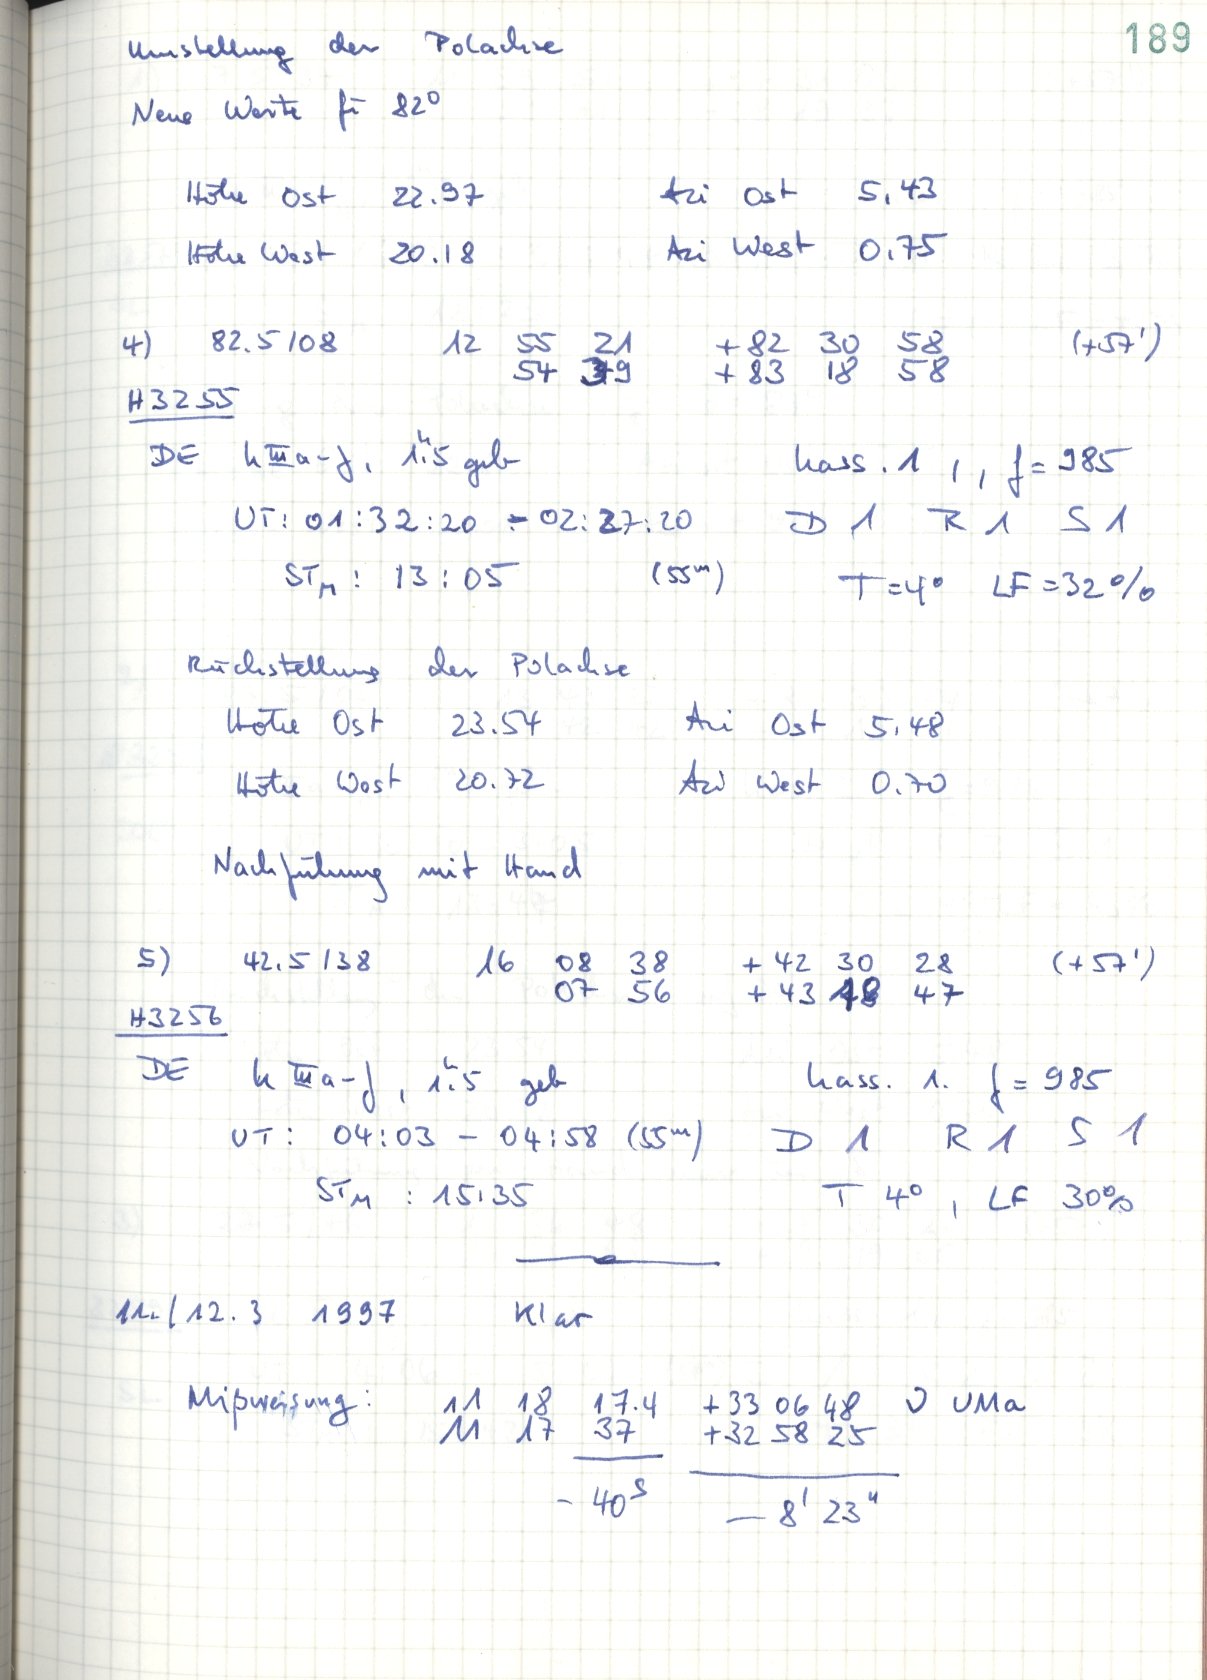 189
Umstellung der Polachse
Neue Werte für 82°
Höhe Ost 22.97 Azi Ost 5.43
Höhe West 20.18 Azi West 0.75
4) 82.5/08 12 55 21 +82 30 58 (+57')
54 39 +83 18 58
H3255
DE k IIIa-J, 1ʰ.5 geb Kass. 1, , f = 985
UT: 01:32:20 - 02:27:20 D 1 R 1 S 1
STM: 13:05 (55ᵐ) T=4° LF=32%
Rückstellung der Polachse
Höhe Ost 23.54 Azi Ost 5.48
Höhe West 20.72 Azi West 0.70
Nachführung mit Hand
5) 42.5/38 16 08 38 +42 30 28 (+57')
07 56 +43 18 47
H3256
DE k IIIa-J, 1ʰ.5 geb Kass. 1. f = 985
UT: 04:03 - 04:58 (55ᵐ) D 1 R 1 S 1
STM: 15:35 T 4°, LF 30%
11./12.3 1997 Klar
Mißweisung: 11 18 17.4 +33 06 48 ν UMa
11 17 37 +32 58 25
- 40ˢ - 8' 23"